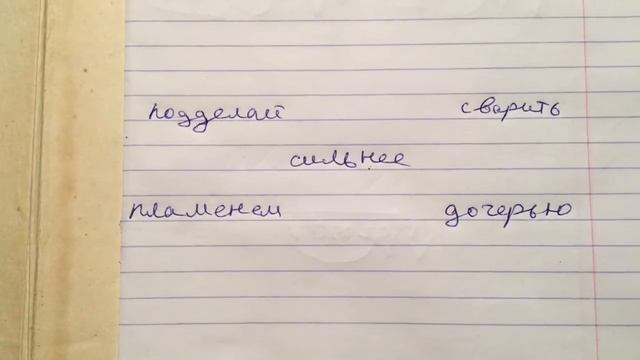 подделай сварить
сильнее
пламенем дочерью